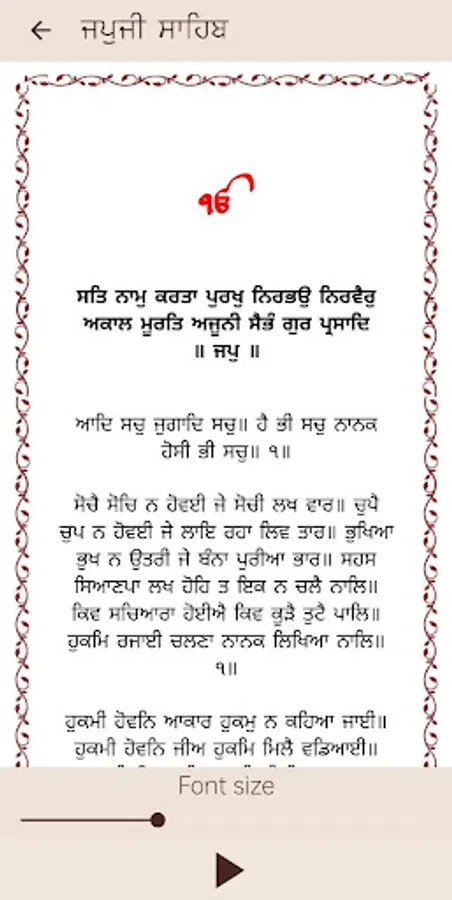 ਜਪੁਜੀ ਸਾਹਿਬ
ੴ
ਸਤਿ ਨਾਮੁ ਕਰਤਾ ਪੁਰਖੁ ਨਿਰਭਉ ਨਿਰਵੈਰੁ
ਅਕਾਲ ਮੂਰਤਿ ਅਜੂਨੀ ਸੈਭੰ ਗੁਰ ਪ੍ਰਸਾਦਿ
॥ ਜਪੁ ॥
ਆਦਿ ਸਚੁ ਜੁਗਾਦਿ ਸਚੁ॥ ਹੈ ਭੀ ਸਚੁ ਨਾਨਕ
ਹੋਸੀ ਭੀ ਸਚੁ॥ ੧॥
ਸੋਚੈ ਸੋਚਿ ਨ ਹੋਵਈ ਜੇ ਸੋਚੀ ਲਖ ਵਾਰ॥ ਚੁਪੈ
ਚੁਪ ਨ ਹੋਵਈ ਜੇ ਲਾਇ ਰਹਾ ਲਿਵ ਤਾਰ॥ ਭੁਖਿਆ
ਭੁਖ ਨ ਉਤਰੀ ਜੇ ਬੰਨਾ ਪੁਰੀਆ ਭਾਰ॥ ਸਹਸ
ਸਿਆਣਪਾ ਲਖ ਹੋਹਿ ਤ ਇਕ ਨ ਚਲੈ ਨਾਲਿ॥
ਕਿਵ ਸਚਿਆਰਾ ਹੋਈਐ ਕਿਵ ਕੂੜੈ ਤੁਟੈ ਪਾਲਿ॥
ਹੁਕਮਿ ਰਜਾਈ ਚਲਣਾ ਨਾਨਕ ਲਿਖਿਆ ਨਾਲਿ॥
੧॥
ਹੁਕਮੀ ਹੋਵਨਿ ਆਕਾਰ ਹੁਕਮੁ ਨ ਕਹਿਆ ਜਾਈ॥
ਹੁਕਮੀ ਹੋਵਨਿ ਜੀਅ ਹੁਕਮਿ ਮਿਲੈ ਵਡਿਆਈ॥
Font size